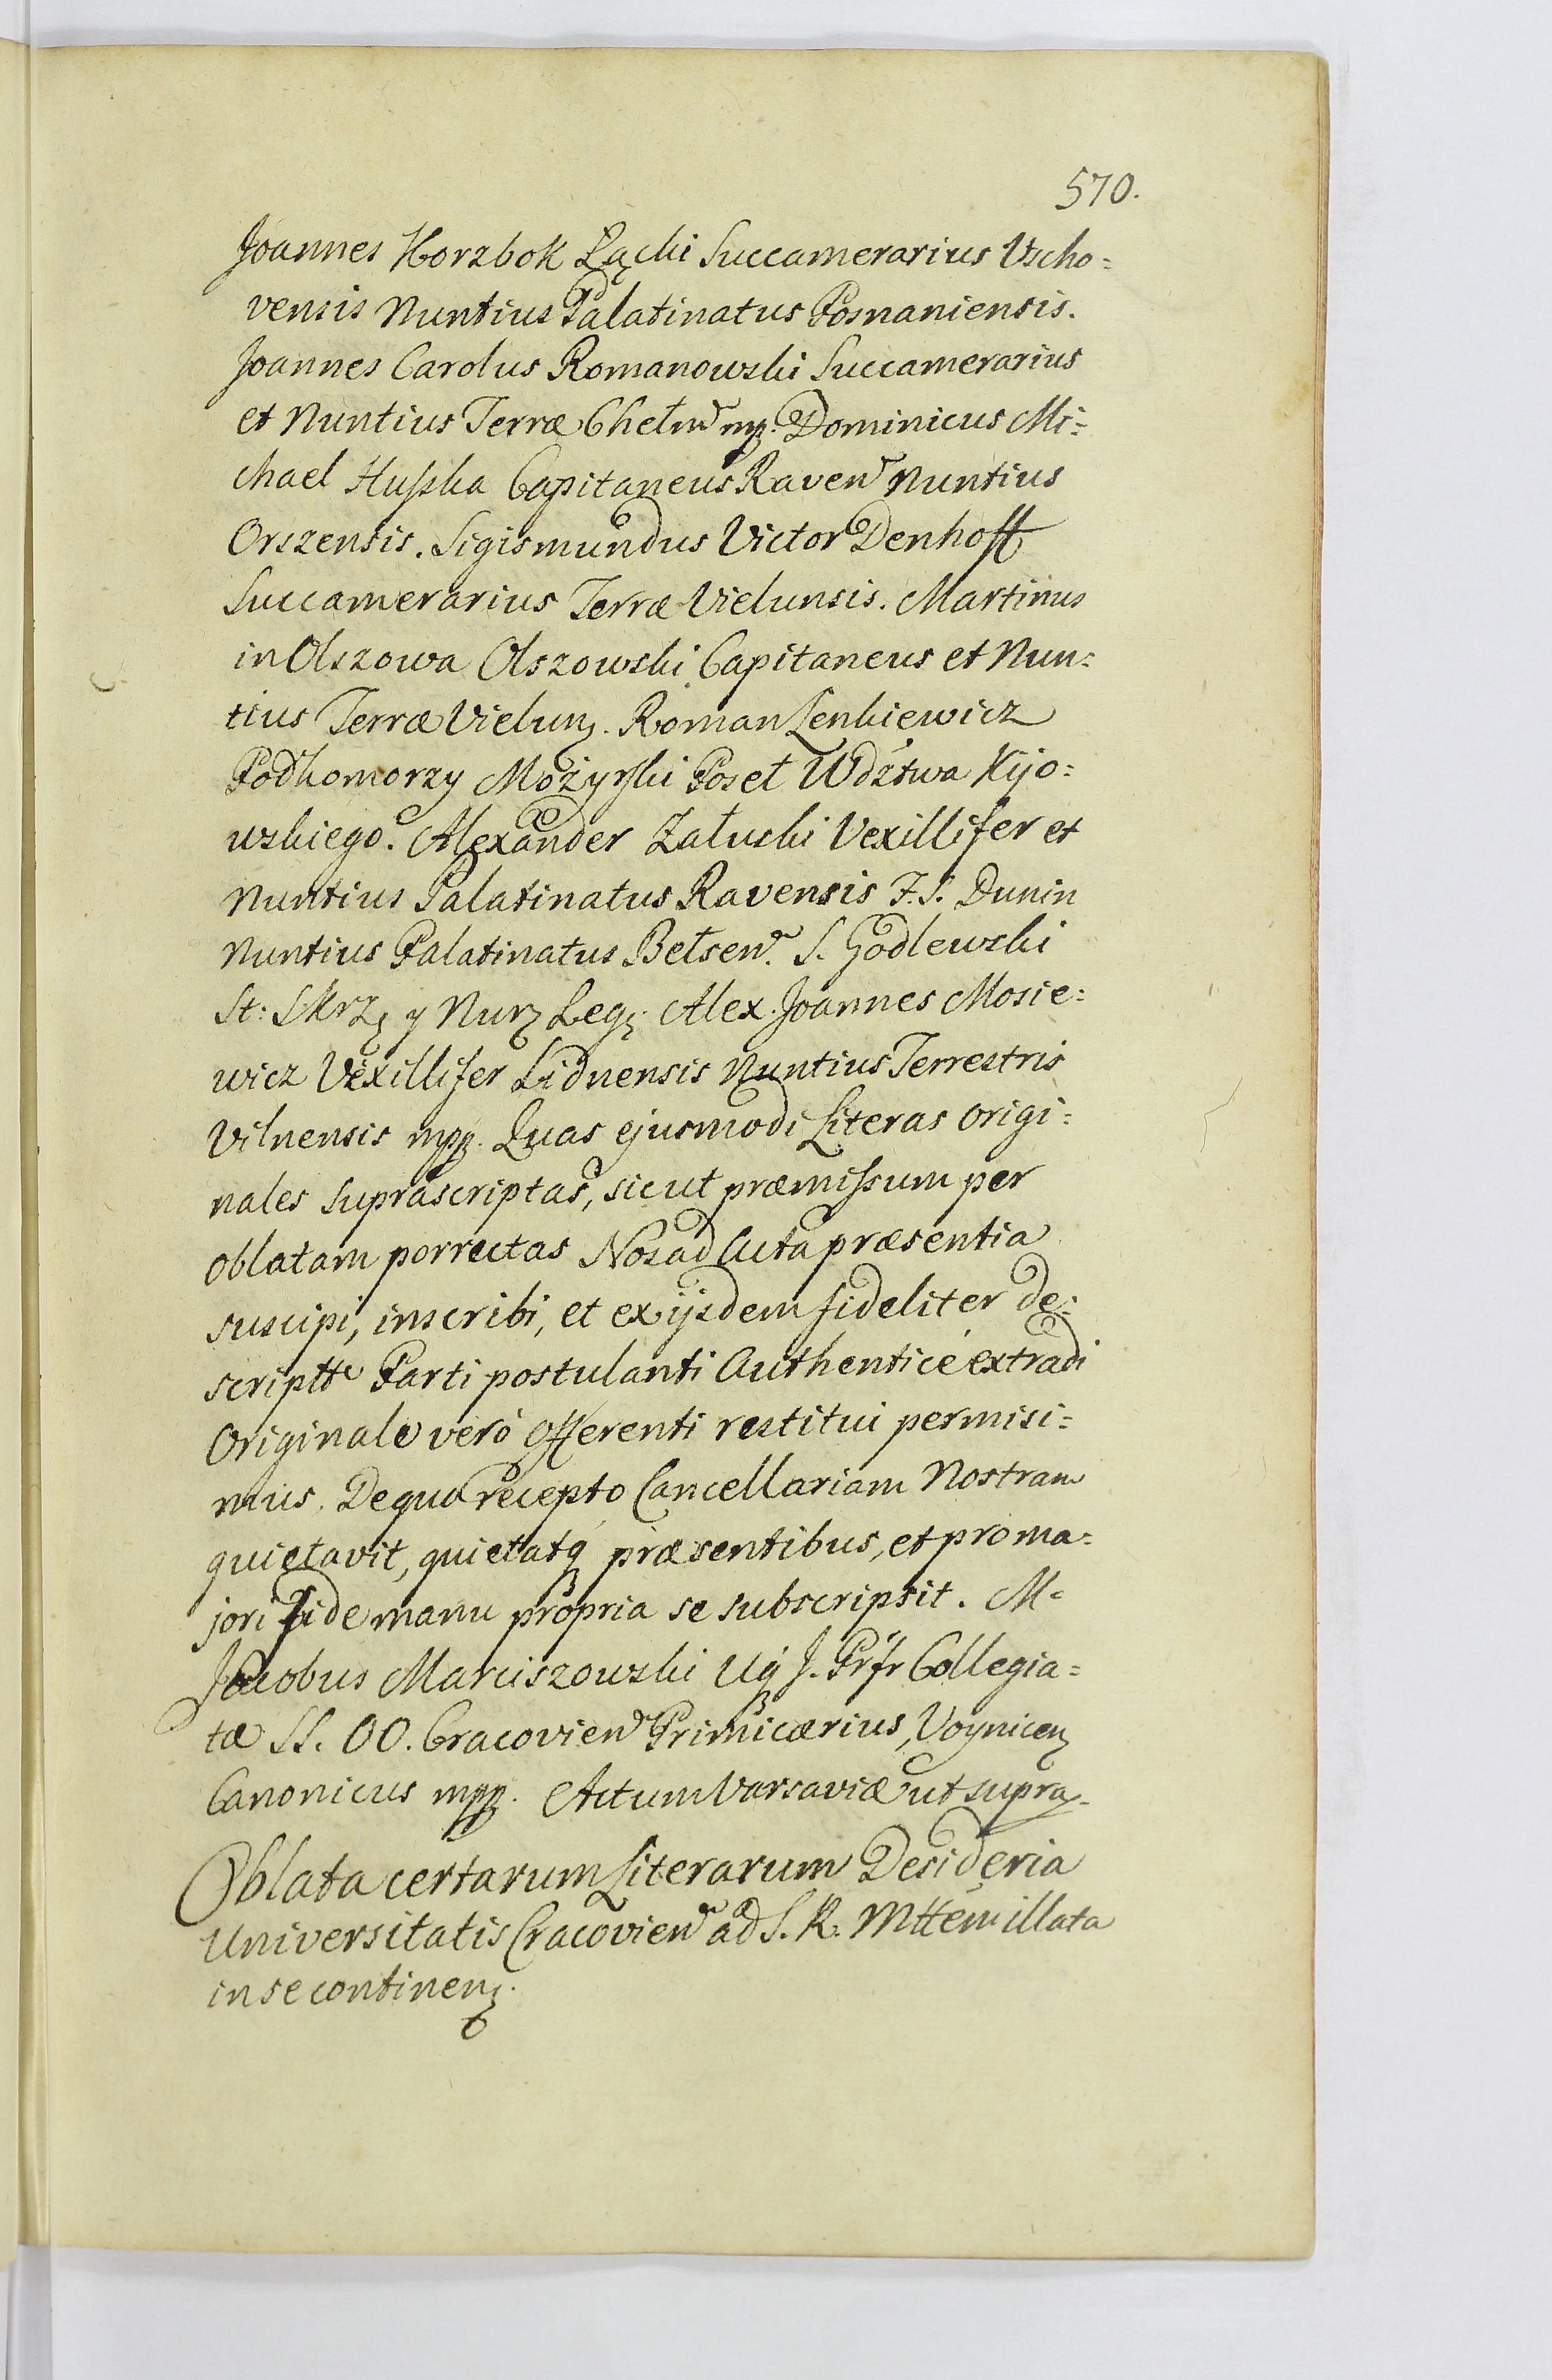 570.
Joannes Korzbok Łącki Succamerarius Vscho=
vensis Nuntius Palatinatus Posnaniensis.
Joannes Carolus Romanowski Succamerarius
et Nuntius Terræ Chełm mp. Dominicus Mi=
chael Huszka Capitaneus Raven Nuntius
Orszensis. Sigismundus Victor Denhoff
Succamerarius Terræ Vielunsis. Martinus
in Olszowa Olszowski Capitaneus et Nun=
tius Terræ Vielunz. Roman Lenkiewicz
Podkomorzy Możyrski Poseł Wdztwa Kijo=
wskiego. Alexander Załuski Vexillifer et
Nuntius Palatinatus Ravensis F. S. Dunin
Nuntius Palatinatus Bełsen. S. Godlewski
St: Skrz y Nurz Leg. Alex. Joannes Mosie=
wicz Vexillifer Lidnensis Nuntius Terrestris
Vilnensis mpp. Quas ejusmodi Literas origi=
nales suprascriptas, sicut præmissum per
oblatam porrectas Nos ad Acta præsentia
suscipi, inscribi, et ex ijsdem fideliter de=
scriptt Parti postulanti Authenticè extradi
Originale verò offerenti restitui permisi=
mus. De quo recepto Cancellariam Nostram
quietavit, quietatq præsentibus, et pro ma=
jori fide manu propria se subscripsit. M=
Jacobus Marciszowski Uq J. Prfr Collegia=
tæ SS. OO. Cracovien Primicærius, Voynicen
Canonicus mpp. Actum Varsaviæ ut supra.
Oblata certarum Literarum Desideria
Universitatis Cracovien ad S. R. Mttem illata
in se continen.